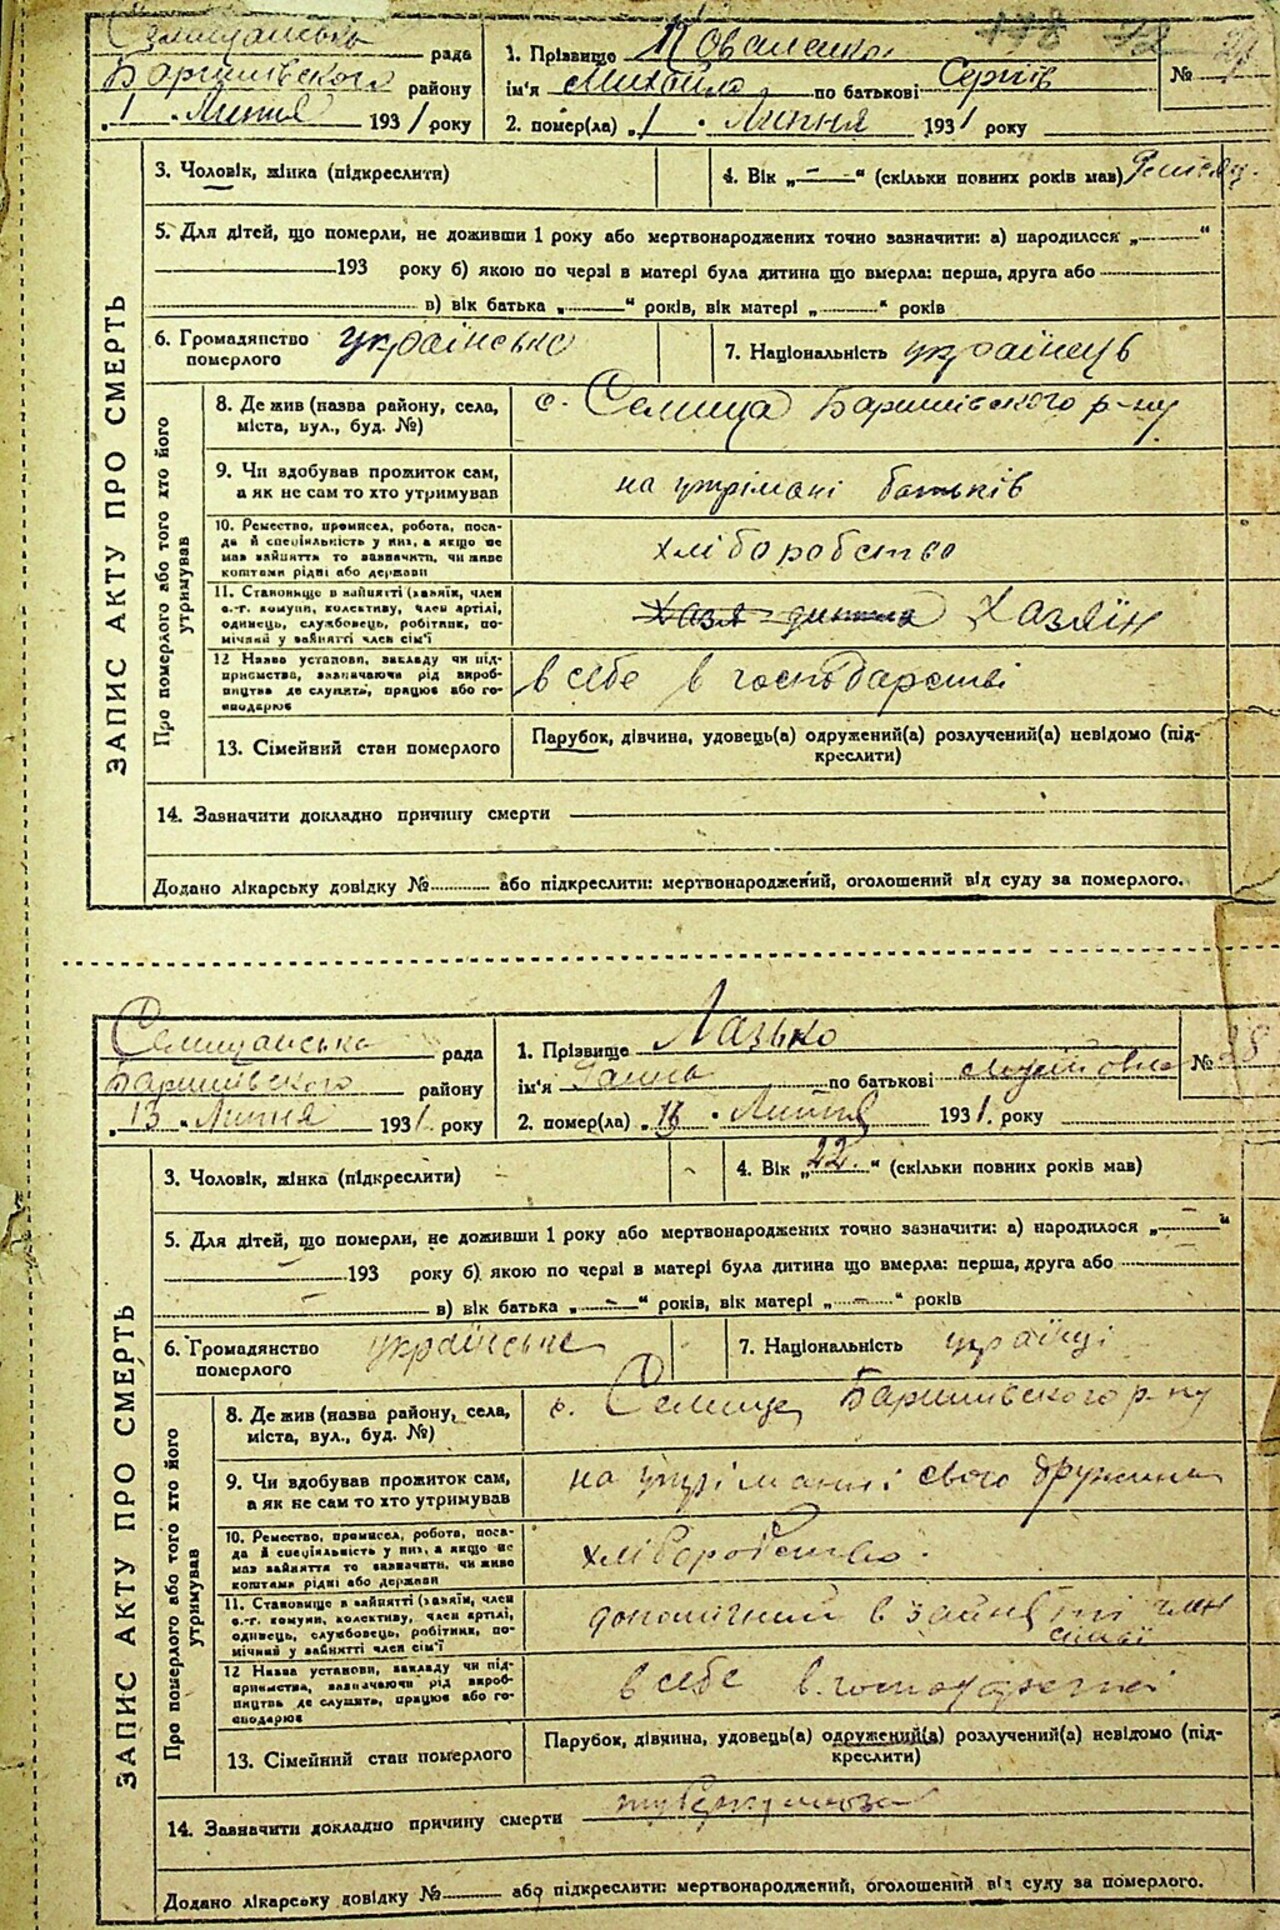 Селищанська рада
Баришівського району
„ 1 “ Липня 1931 року
1. Прізвище Коваленко
ім'я Михайло по батькові Сергіїв
№ 27
2. помер(ла) „ 1 “ Липня 1931 року
ЗАПИС АКТУ ПРО СМЕРТЬ
3. Чоловік, жінка (підкреслити)
4. Вік „ — “ (скільки повних років мав)
5. Для дітей, що померли, не доживши 1 року або мертвонароджених точно зазначити: а) народилося „ “
193 року б) якою по черзі в матері була дитина що вмерла: перша, друга або
в) вік батька „ “ років, вік матері „ “ років
6. Громадянство українське
померлого
7. Національність українець
Про померлого або того хто його утримував
8. Де жив (назва району, села, с. Селища Баришівського р-ну
міста, вул., буд. №)
9. Чи здобував прожиток сам, на утрімані батьків
а як не сам то хто утримував
10. Ремество, промисел, робота, поса-
да й спеціяльність у них, а якщо не хліборобство
мав зайняття то зазначити, чи живе
коштами рідні або держави
11. Становище в зайнятті (хазяїн, член
с.-г. комуни, колективу, член артілі, Хазяїн
одинець, службовець, робітник, по-
мічний у зайнятті член сім'ї
12 Назва установи, закладу чи під-
приємства, зазначаючи рід вироб- в себе в господарстві
ництва де служить, працює або го-
сподарює
13. Сімейний стан померлого
Парубок, дівчина, удовець(а) одружений(а) розлучений(а) невідомо (під-
креслити)
14. Зазначити докладно причину смерти
Додано лікарську довідку № або підкреслити: мертвонароджений, оголошений від суду за померлого.
Селищанська рада
Баришівського району
„ 13 “ Липня 1931. року
1. Прізвище Лазько
ім'я по батькові
№ 28
2. помер(ла) „ “ Липня 1931. року
ЗАПИС АКТУ ПРО СМЕРТЬ
3. Чоловік, жінка (підкреслити)
4. Вік „ 22. “ (скільки повних років мав)
5. Для дітей, що померли, не доживши 1 року або мертвонароджених точно зазначити: а) народилося „ — “
193 року б) якою по черзі в матері була дитина що вмерла: перша, друга або
в) вік батька „ — “ років, вік матері „ — “ років
6. Громадянство українське
померлого
7. Національність україңці
Про померлого або того хто його утримував
8. Де жив (назва району, села, с. Селище Баришівського р-ну
міста, вул., буд. №)
9. Чи здобував прожиток сам, на утріманні свого дружина
а як не сам то хто утримував
10. Ремество, промисел, робота, поса-
да й спеціяльність у них, а якщо не хліборобство.
мав зайняття то зазначити, чи живе
коштами рідні або держави
11. Становище в зайнятті (хазяїн, член
с.-г. комуни, колективу, член артілі, допомічний в зайнятті член
одинець, службовець, робітник, по- сімьї
мічний у зайнятті член сім'ї
12 Назва установи, закладу чи під-
приємства, зазначаючи рід вироб- в себе в господарстві
ництва де служить, працює або го-
сподарює
13. Сімейний стан померлого
Парубок, дівчина, удовець(а) одружений(а) розлучений(а) невідомо (під-
креслити)
14. Зазначити докладно причину смерти туберкульоза
Додано лікарську довідку № або підкреслити: мертвонароджений, оголошений від суду за померлого.